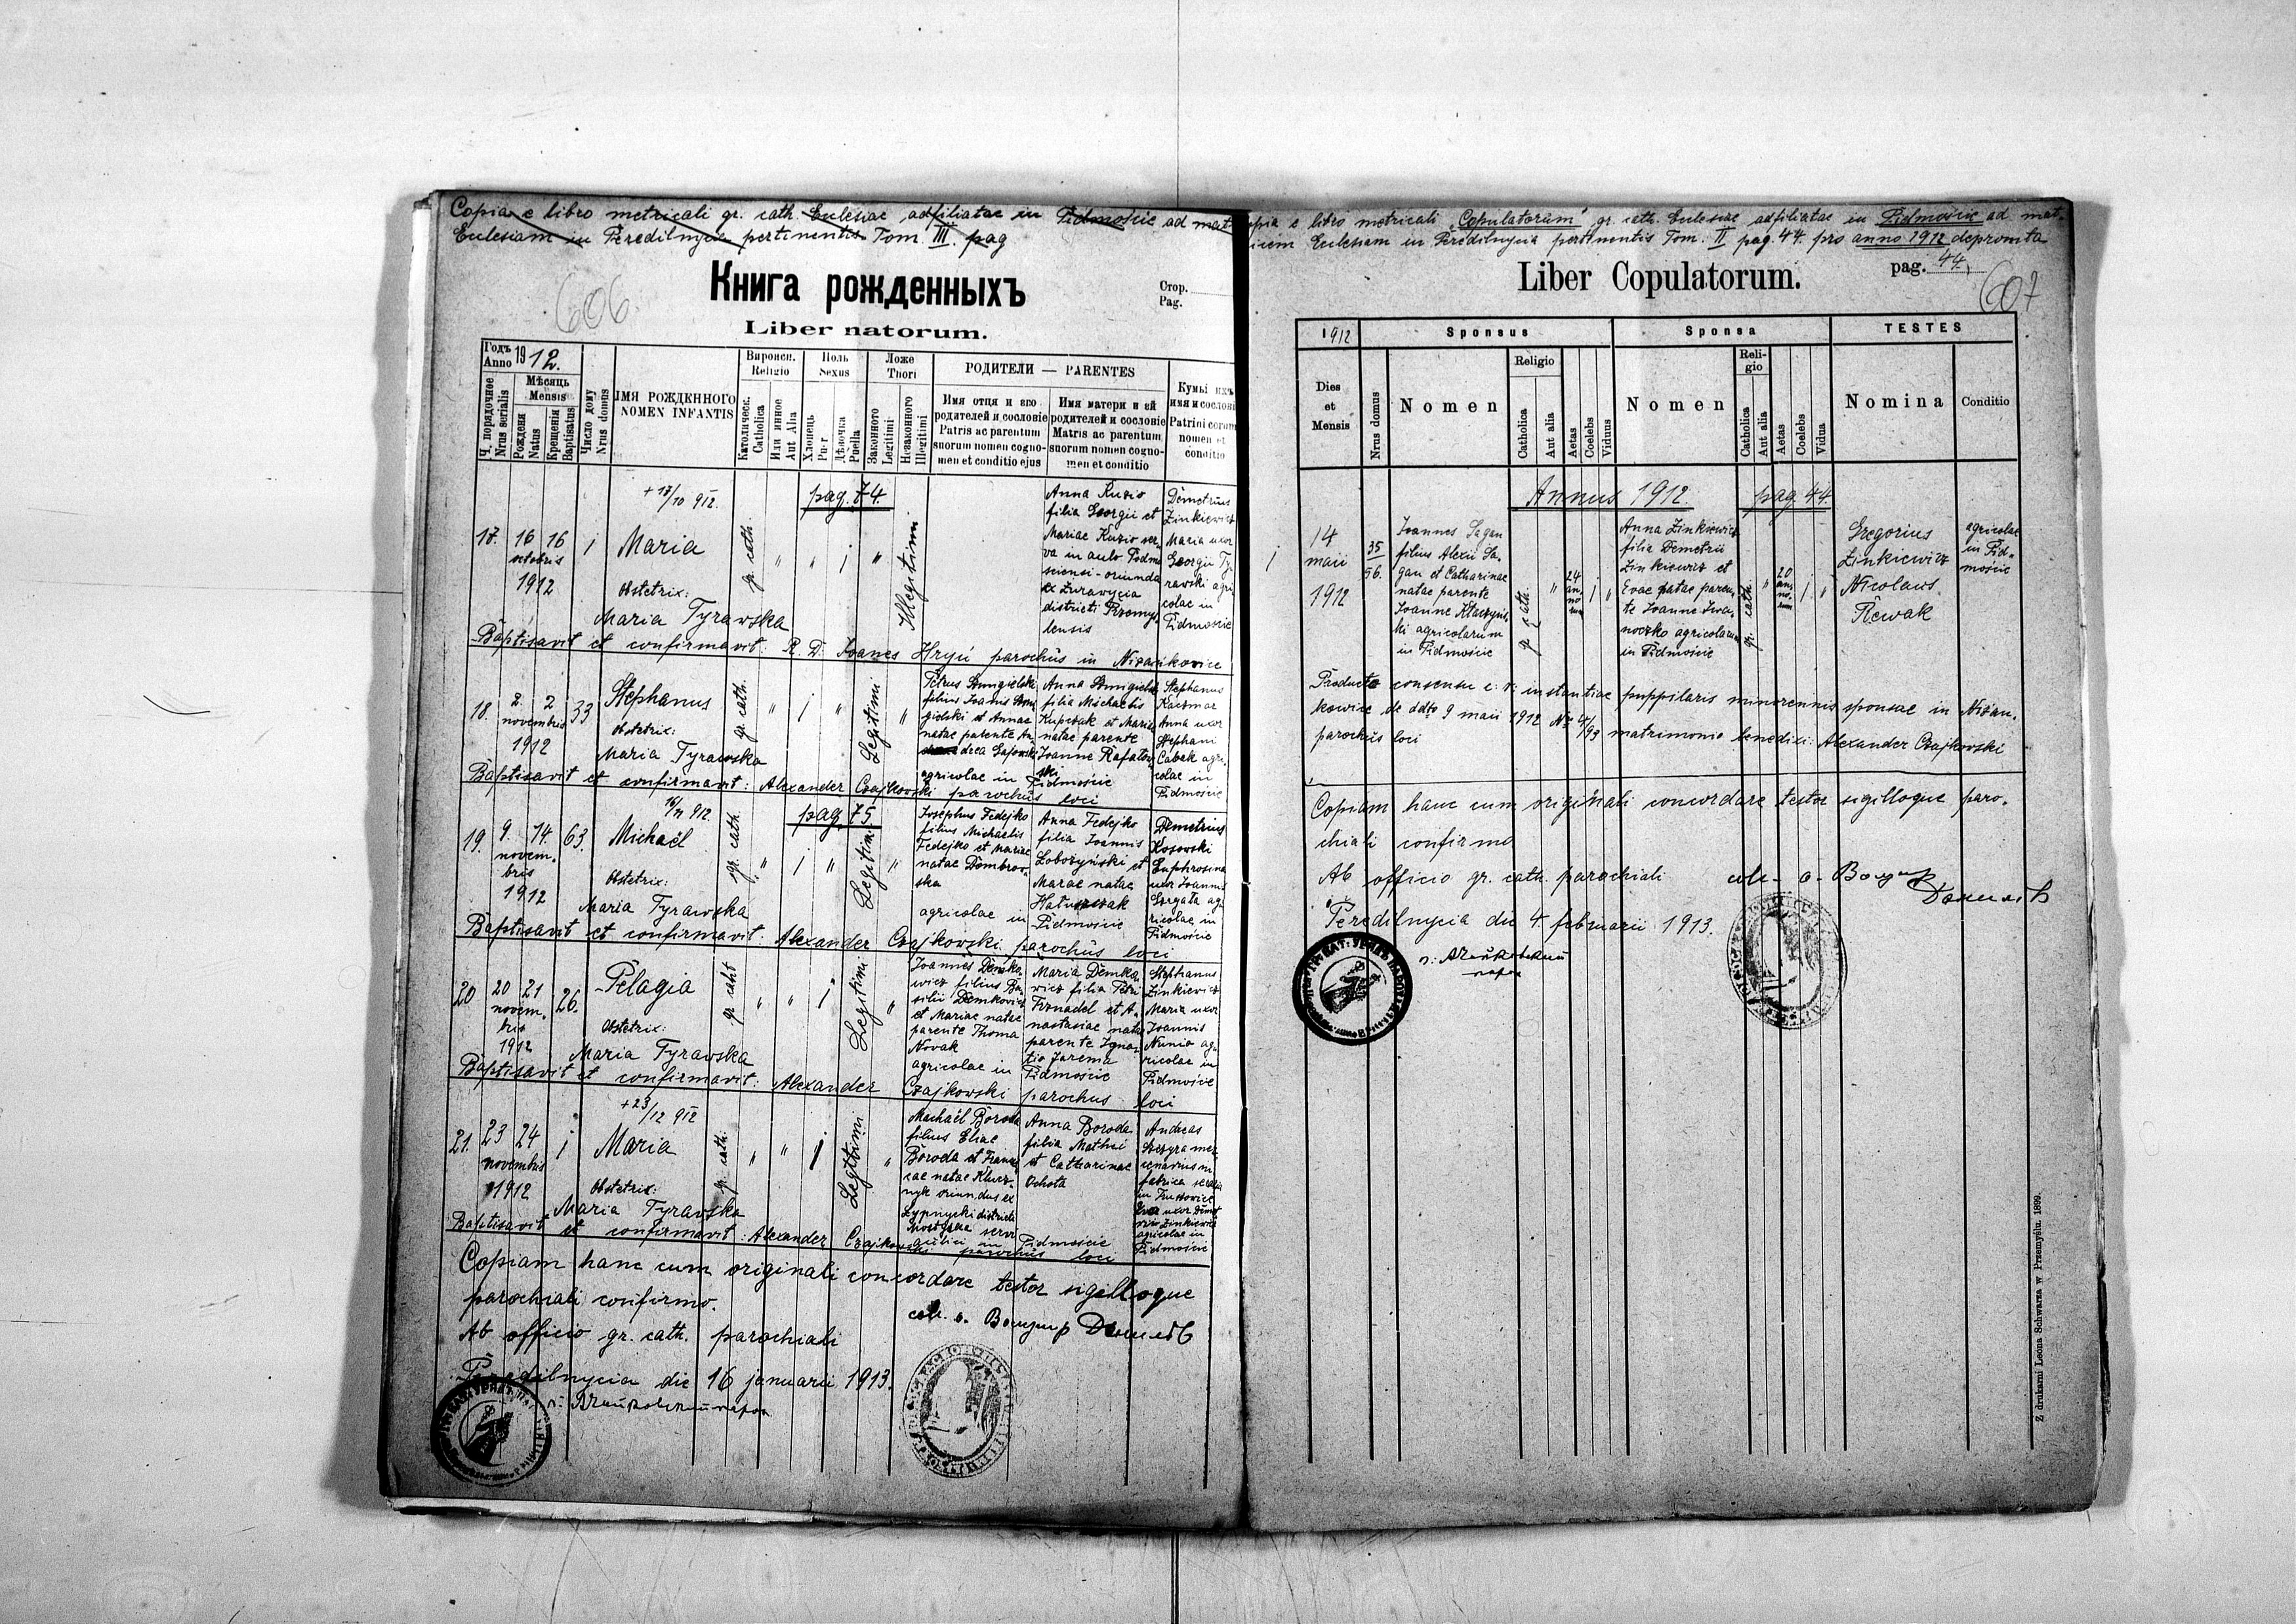 Copia e libro metricali gr. cath. Eulesiae adfiliatae in Pidmoście ad mat
Eulesiam in Peredilnycia pertinentis Tom. III. pag
606
Книга рожденныхъ
Liber natorum.
Стор.
Pag.
Годъ Anno 1912.
Ч. порядочное Nrus serialis
Мѣсяць Mensis
Рожденя Natus
Крещенія Baptisatus
Число дому Nrus domus
ИМЯ РОЖДЕННОГО
NOMEN INFANTIS
Вироисп. Religio
Католическ. Catholica
Или иное Aut Alia
Поль Sexus
Хлопець Pu-r
Дѣвочка Puella
Ложе Thori
Законного Legitimi
Незаконного Illegitimi
РОДИТЕЛИ — PARENTES
Имя отця и его
родителей и сословіе
Patris ac parentum
suorum nomen cogno-
men et conditio ejus
Имя матери и ей
родителей и сословіе
Matris ac parentum
suorum nomen cogno-
men et conditio
Кумы ихъ
имя и сословіе
Patrini eorum
nomen et
conditio
+ 17/10 912.
pag. 74.
17. 16 16
octobris
1912
1
Maria
Obstetrix:
Maria Tyrawska
gr. cath. " " 1 "
Illegitimi
Anna Kuzio
filia Georgii et
Mariae Kuzio ser-
va in aulo Pidmo
sciensi - oriunda
ex Żurawycia
districti Przemyś
lensis
Demetrius
Zinkiewicz
Maria uxor
Georgii Ty-
rawski agri
colae in
Pidmoście
Baptisavit et confirmavit: R. D. Joanes Hryń parochus in Niżankowice
18. 2. 2
novembris
1912
33
Stephanus
Obstetrix:
Maria Tyrawska
gr. cath. " 1 "
Legitimi "
natae parente An
agricolae in
Anna
filia Michaelis
natae parente
Joanne Rafałow
ski
Pidmoście
Stephanus
Kaczmar
Anna uxor
Stephani
Cabak agri-
colae in
Pidmoście
Baptisavit et confirmavit: Alexander Czajkowski parochus loci
912.
pag. 75
19. 9. 14.
novem-
bris
1912
63.
Michaël
Obstetrix:
Maria Tyrawska
gr. cath. " 1 "
Legitimi "
Josephus Fedejko
filius Michaelis
Fedejko et Mariae
natae Dombrow-
ska
agricolae in
Anna Fedejko
filia Joannis
Łobożyński et
Marae natae
Pidmoście
Demetrius
Kosowski
Euphrosina
uxor Joannis
ag
ricolae in
Pidmoście
Baptisavit et confirmavit: Alexander Czajkowski parochus loci
20 20 21
novem-
bris
1912
26.
Pelagia
Obstetrix:
Maria Tyrawska
gr. cath " " 1
Legitimi "
Joannes Demko-
wicz filius Ba-
silii Demkowicz
et Mariae natae
parente Thoma
Novak
agricolae in
Maria Demko
wicz filia Petri
Frnadel et A-
nastasiae natae
parente Igna-
tio Jarema
Pidmoście
Stephanus
Zinkiewicz
Maria uxor
Joannis
Nunio ag-
ricolae in
Pidmoście
Baptisavit et confirmavit: Alexander Czajkowski parochus loci
+ 23/12 912
21. 23 24
novembris
1912
1
Maria
Obstetrix:
Maria Tyrawska
gr. cath. " " 1
Legitimi "
Michaël Boroda
filius Eliae
Boroda et Francis
cae natae
oriundus ex
districti
Pidmoście
Anna Boroda
filia Mathei
et Catharinae
Ochota
Andreas
mer
cenarius in
fabrica
in
uxor
agricolae in
Pidmoście
Baptisavit et confirmavit: Alexander Czajkowski parochus loci
Copiam hanc cum originali concordare testor sigilloque
parochiali confirmo.
Ab officio gr. cath. parochiali
Peredilnycia die 16 januarii 1913.
copia e libro metricali „Copulatorum" gr. cath. Eulesiae adfiliatae in Pidmoście ad mat-
ricem Eulesiam in Peredilnycia pertinentis Tom. II pag. 44. pro anno 1912 depromta
Liber Copulatorum.
pag. 44.
607
1912
Sponsus
Sponsa
TESTES
Dies
et
Mensis
Nrus domus
Nomen
Religio
Catholica
Aut alia
Aetas
Coelebs
Viduus
Nomen
Reli-
gio
Catholica
Aut alia
Aetas
Coelebs
Vidua
Nomina
Conditio
Annus 1912. pag 44.
1
14
maii
1912
35
56.
Joannes Sagan
filius Alexii Sa-
gan et Catharinae
natae parente
Joanne Kłaczyńs
ki agricolarum
in Pidmoście
gr. cath. "
24
an
no
rum
1 "
Anna Zinkiewicz
filia Demetrii
Zinkiewicz et
Evae natae paren-
te Joanne Iwa-
noczko agricolarum
in Pidmoście
gr. cath. "
20
an
no-
rum
1 "
Gregorius
Zinkiewicz
Nicolaus
Rewak
agricolae
in Pid-
moście
Producto consensu c: r: instantiae puppilaris minorennis sponsae in Niżan-
kowice de dato 9 maii 1912 No 4/93 matrimonio benedixi: Alexander Czajkowski
parochus loci
Copiam hanc cum originali concordare testor sigilloque paro-
chiali confirmo
Ab officio gr. cath. parochiali
Peredilnycia die 4. februarii 1913.
Z drukarni Leona Schwarza w Przemyślu. 1899.